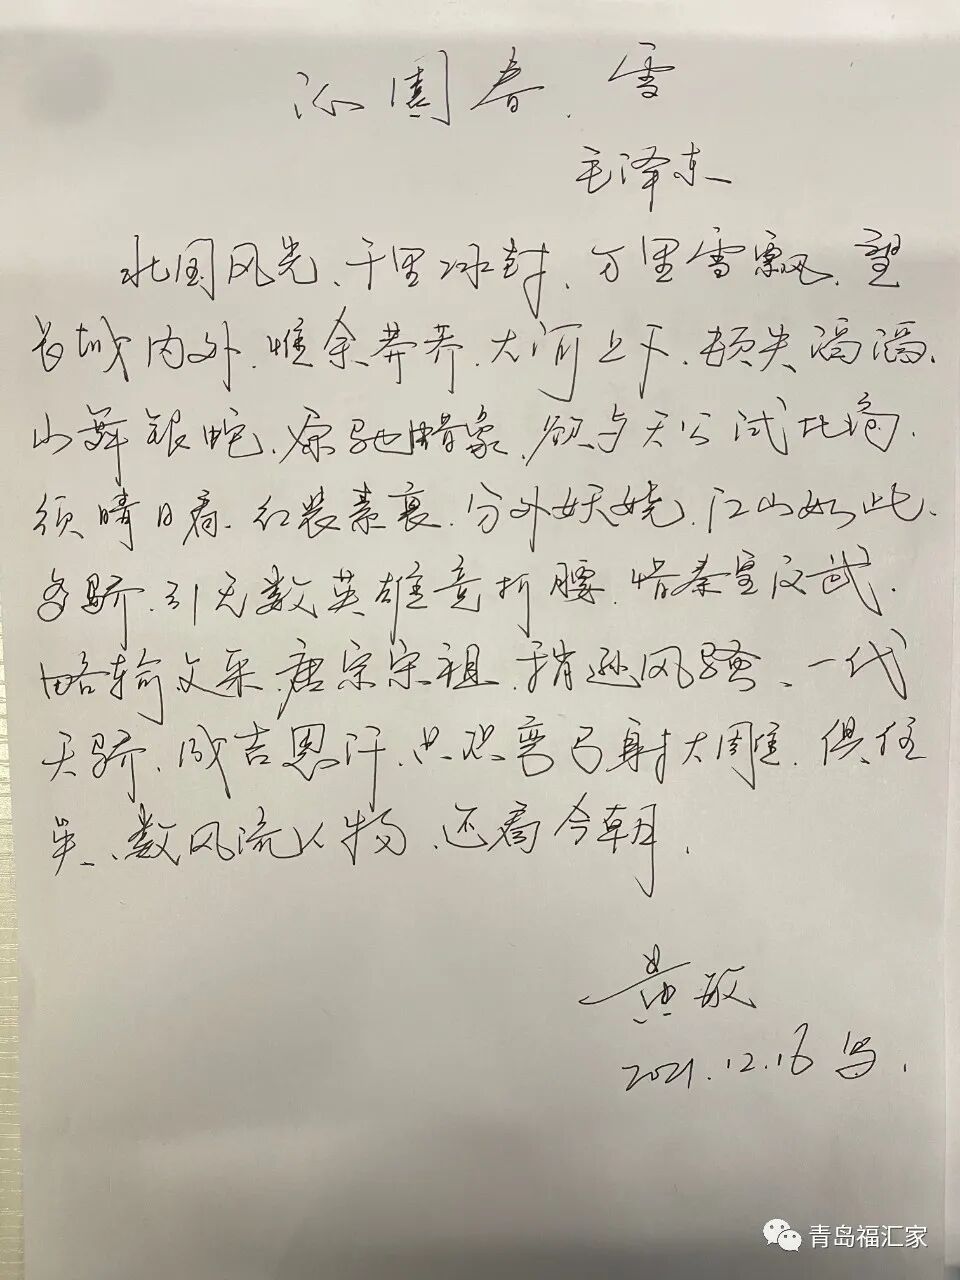 沁園春.雪
毛泽东
北国风光、千里冰封、万里雪飘.望
长城内外.惟余莽莽.大河上下.顿失滔滔.
山舞银蛇.原驰腊象.欲与天公试比高.
须晴日看.红装素裹.分外妖娆.江山如此.
多骄.引无数英雄竞折腰.惜秦皇汉武.
略输文采.唐宗宋祖.稍逊风骚、一代
天骄.成吉思汗.只识弯弓射大雕.俱往
矣、数风流人物.还看今朝.
黄敏
2021.12.16写.
青岛福汇家